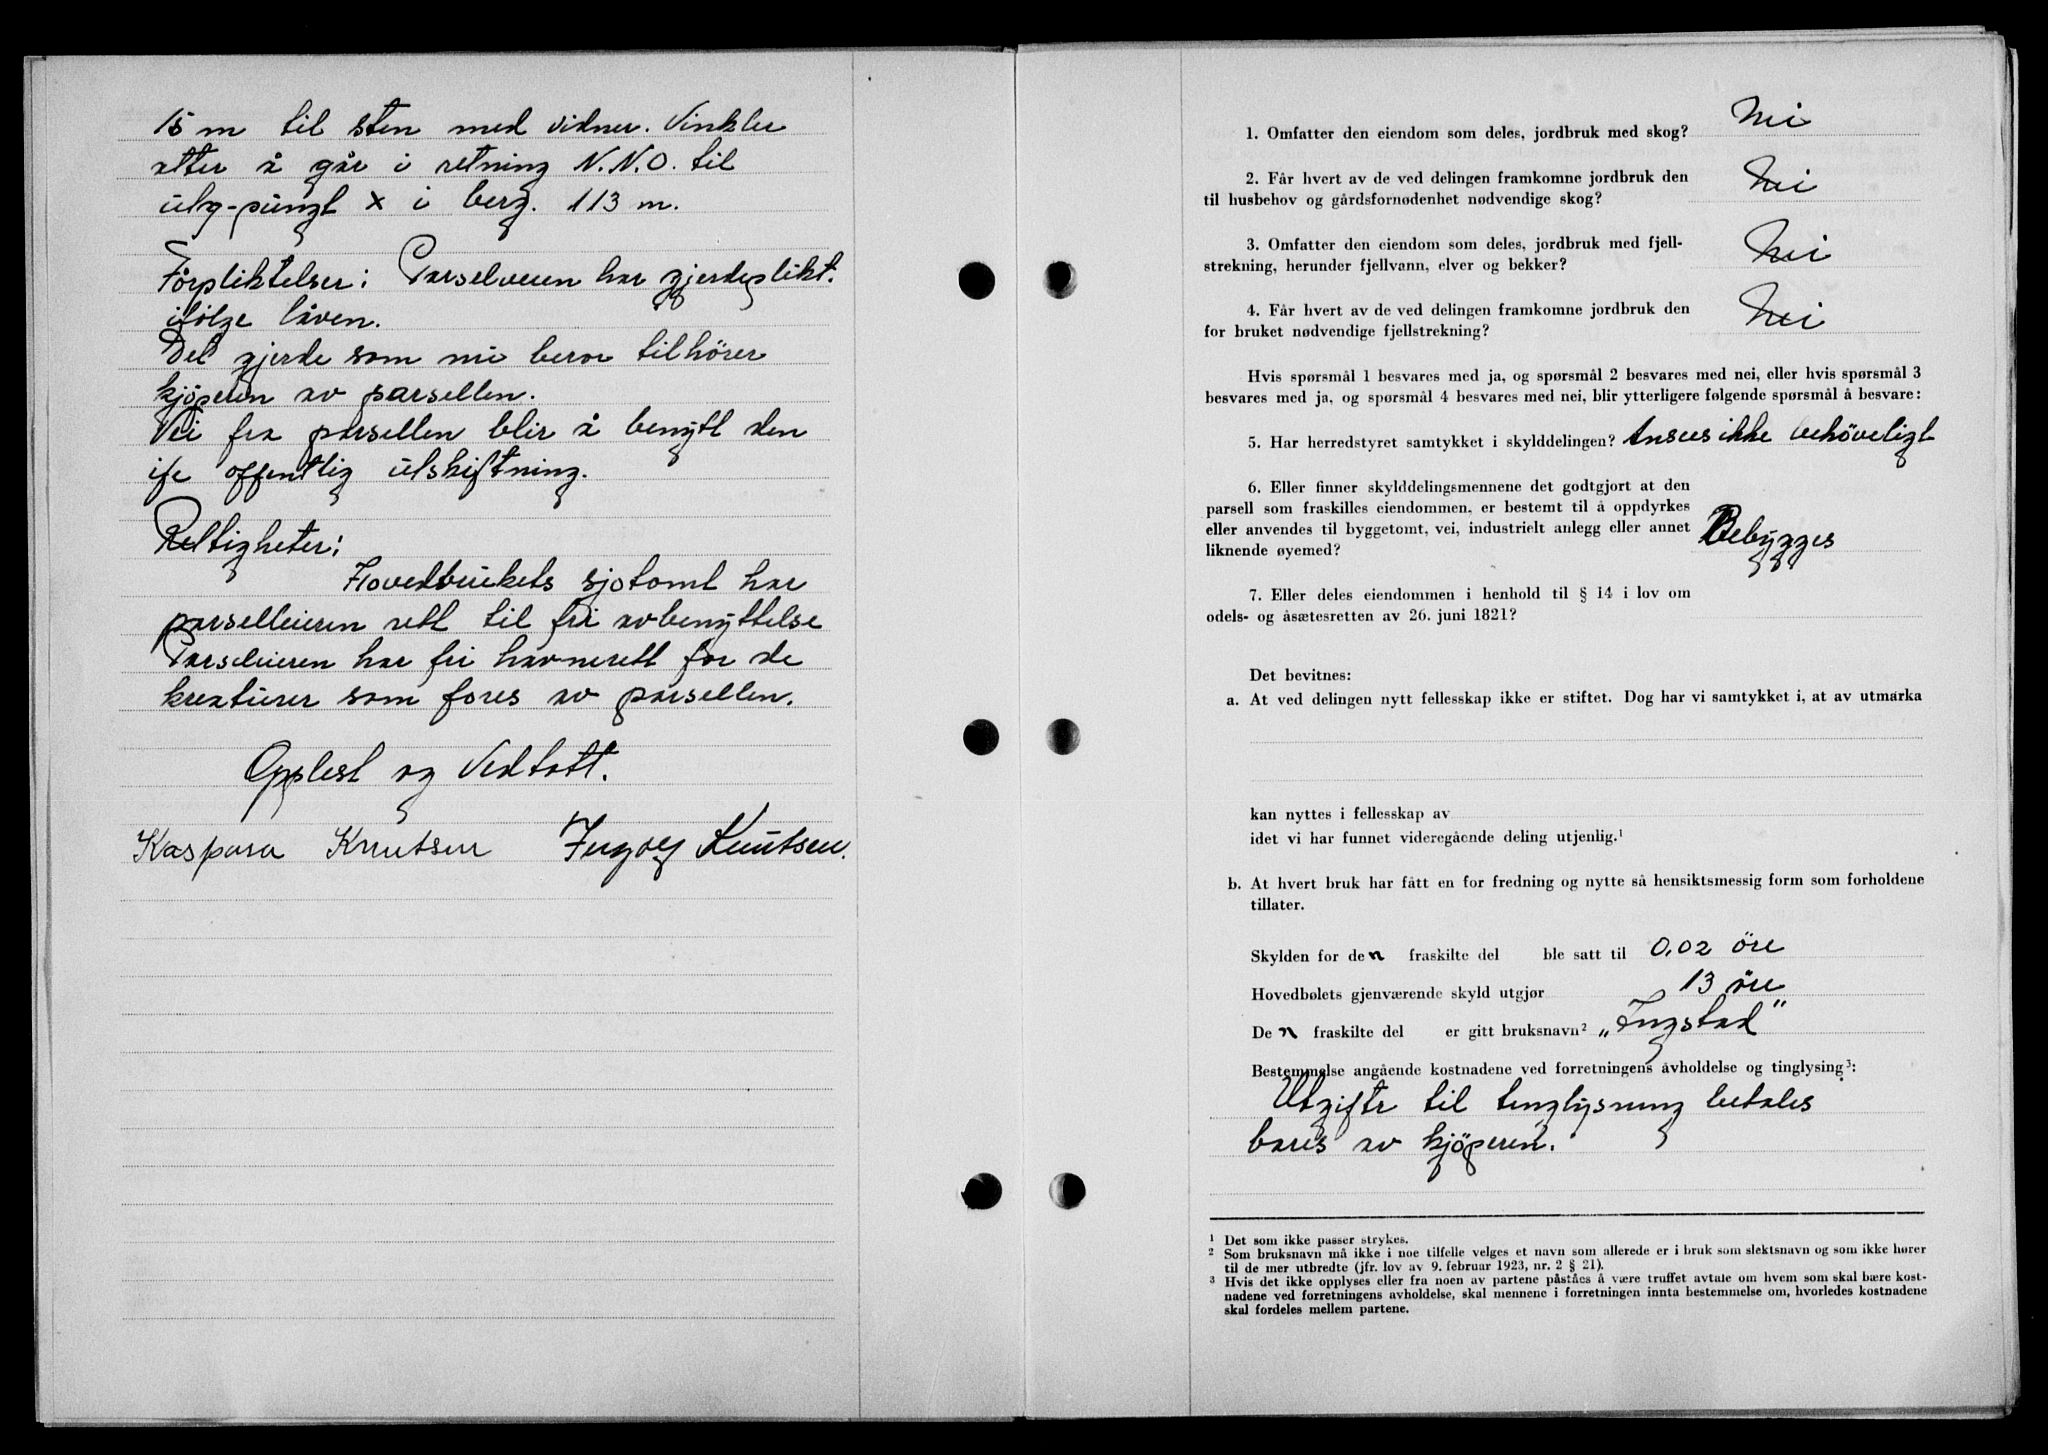 15 m til sten med vidner. Vinkler
atter å går i retning N.N.O. til
utg-pungt x i berg. 113 m.
Førpliktelser: Parseleieren har gjerdeplikt.
ifølge låven.
Del gjerde som nu beror tilhører
kjøperen av parsellen.
Vei fra parsellen blir å benytt den
ife offentlig utskiftning.
Rettigheter:
Hovedbrukets sjøtomt har
parselleieren rett til fri avbenyttelse
Parseleieren har fri havnerett for de
kreaturer som fores av parsellen.
Opplest og Vedtatt.
Kaspara Knutsen Ingolf Knutsen.
1. Omfatter den eiendom som deles, jordbruk med skog? Nei
2. Får hvert av de ved delingen framkomne jordbruk den
til husbehov og gårdsfornødenhet nødvendige skog? Nei
3. Omfatter den eiendom som deles, jordbruk med fjell-
strekning, herunder fjellvann, elver og bekker? Nei
4. Får hvert av de ved delingen framkomne jordbruk den
for bruket nødvendige fjellstrekning? Nei
Hvis spørsmål 1 besvares med ja, og spørsmål 2 besvares med nei, eller hvis spørsmål 3
besvares med ja, og spørsmål 4 besvares med nei, blir ytterligere følgende spørsmål å besvare:
5. Har herredstyret samtykket i skylddelingen? Ansees ikke behöveligt
6. Eller finner skylddelingsmennene det godtgjort at den
parsell som fraskilles eiendommen, er bestemt til å oppdyrkes
eller anvendes til byggetomt, vei, industrielt anlegg eller annet
liknende øyemed? Bebygges
7. Eller deles eiendommen i henhold til § 14 i lov om
odels- og åsætesretten av 26. juni 1821?
Det bevitnes:
a. At ved delingen nytt fellesskap ikke er stiftet. Dog har vi samtykket i, at av utmarka
kan nyttes i fellesskap av
idet vi har funnet videregående deling utjenlig.¹
b. At hvert bruk har fått en for fredning og nytte så hensiktsmessig form som forholdene
tillater.
Skylden for den fraskilte del ble satt til 0,02 öre
Hovedbølets gjenværende skyld utgjør 13 öre
Den fraskilte del er gitt bruksnavn² „Ingstad"
Bestemmelse angående kostnadene ved forretningens avholdelse og tinglysing³:
Utgifter til tinglysning betales
bares av kjöperen.
¹ Det som ikke passer strykes.
² Som bruksnavn må ikke i noe tilfelle velges et navn som allerede er i bruk som slektsnavn og som ikke hører
til de mer utbredte (jfr. lov av 9. februar 1923, nr. 2 § 21).
³ Hvis det ikke opplyses eller fra noen av partene påståes å være truffet avtale om hvem som skal bære kost-
nadene ved forretningens avholdelse, skal mennene i forretningen innta bestemmelse om, hvorledes kostnadene
skal fordeles mellem partene.